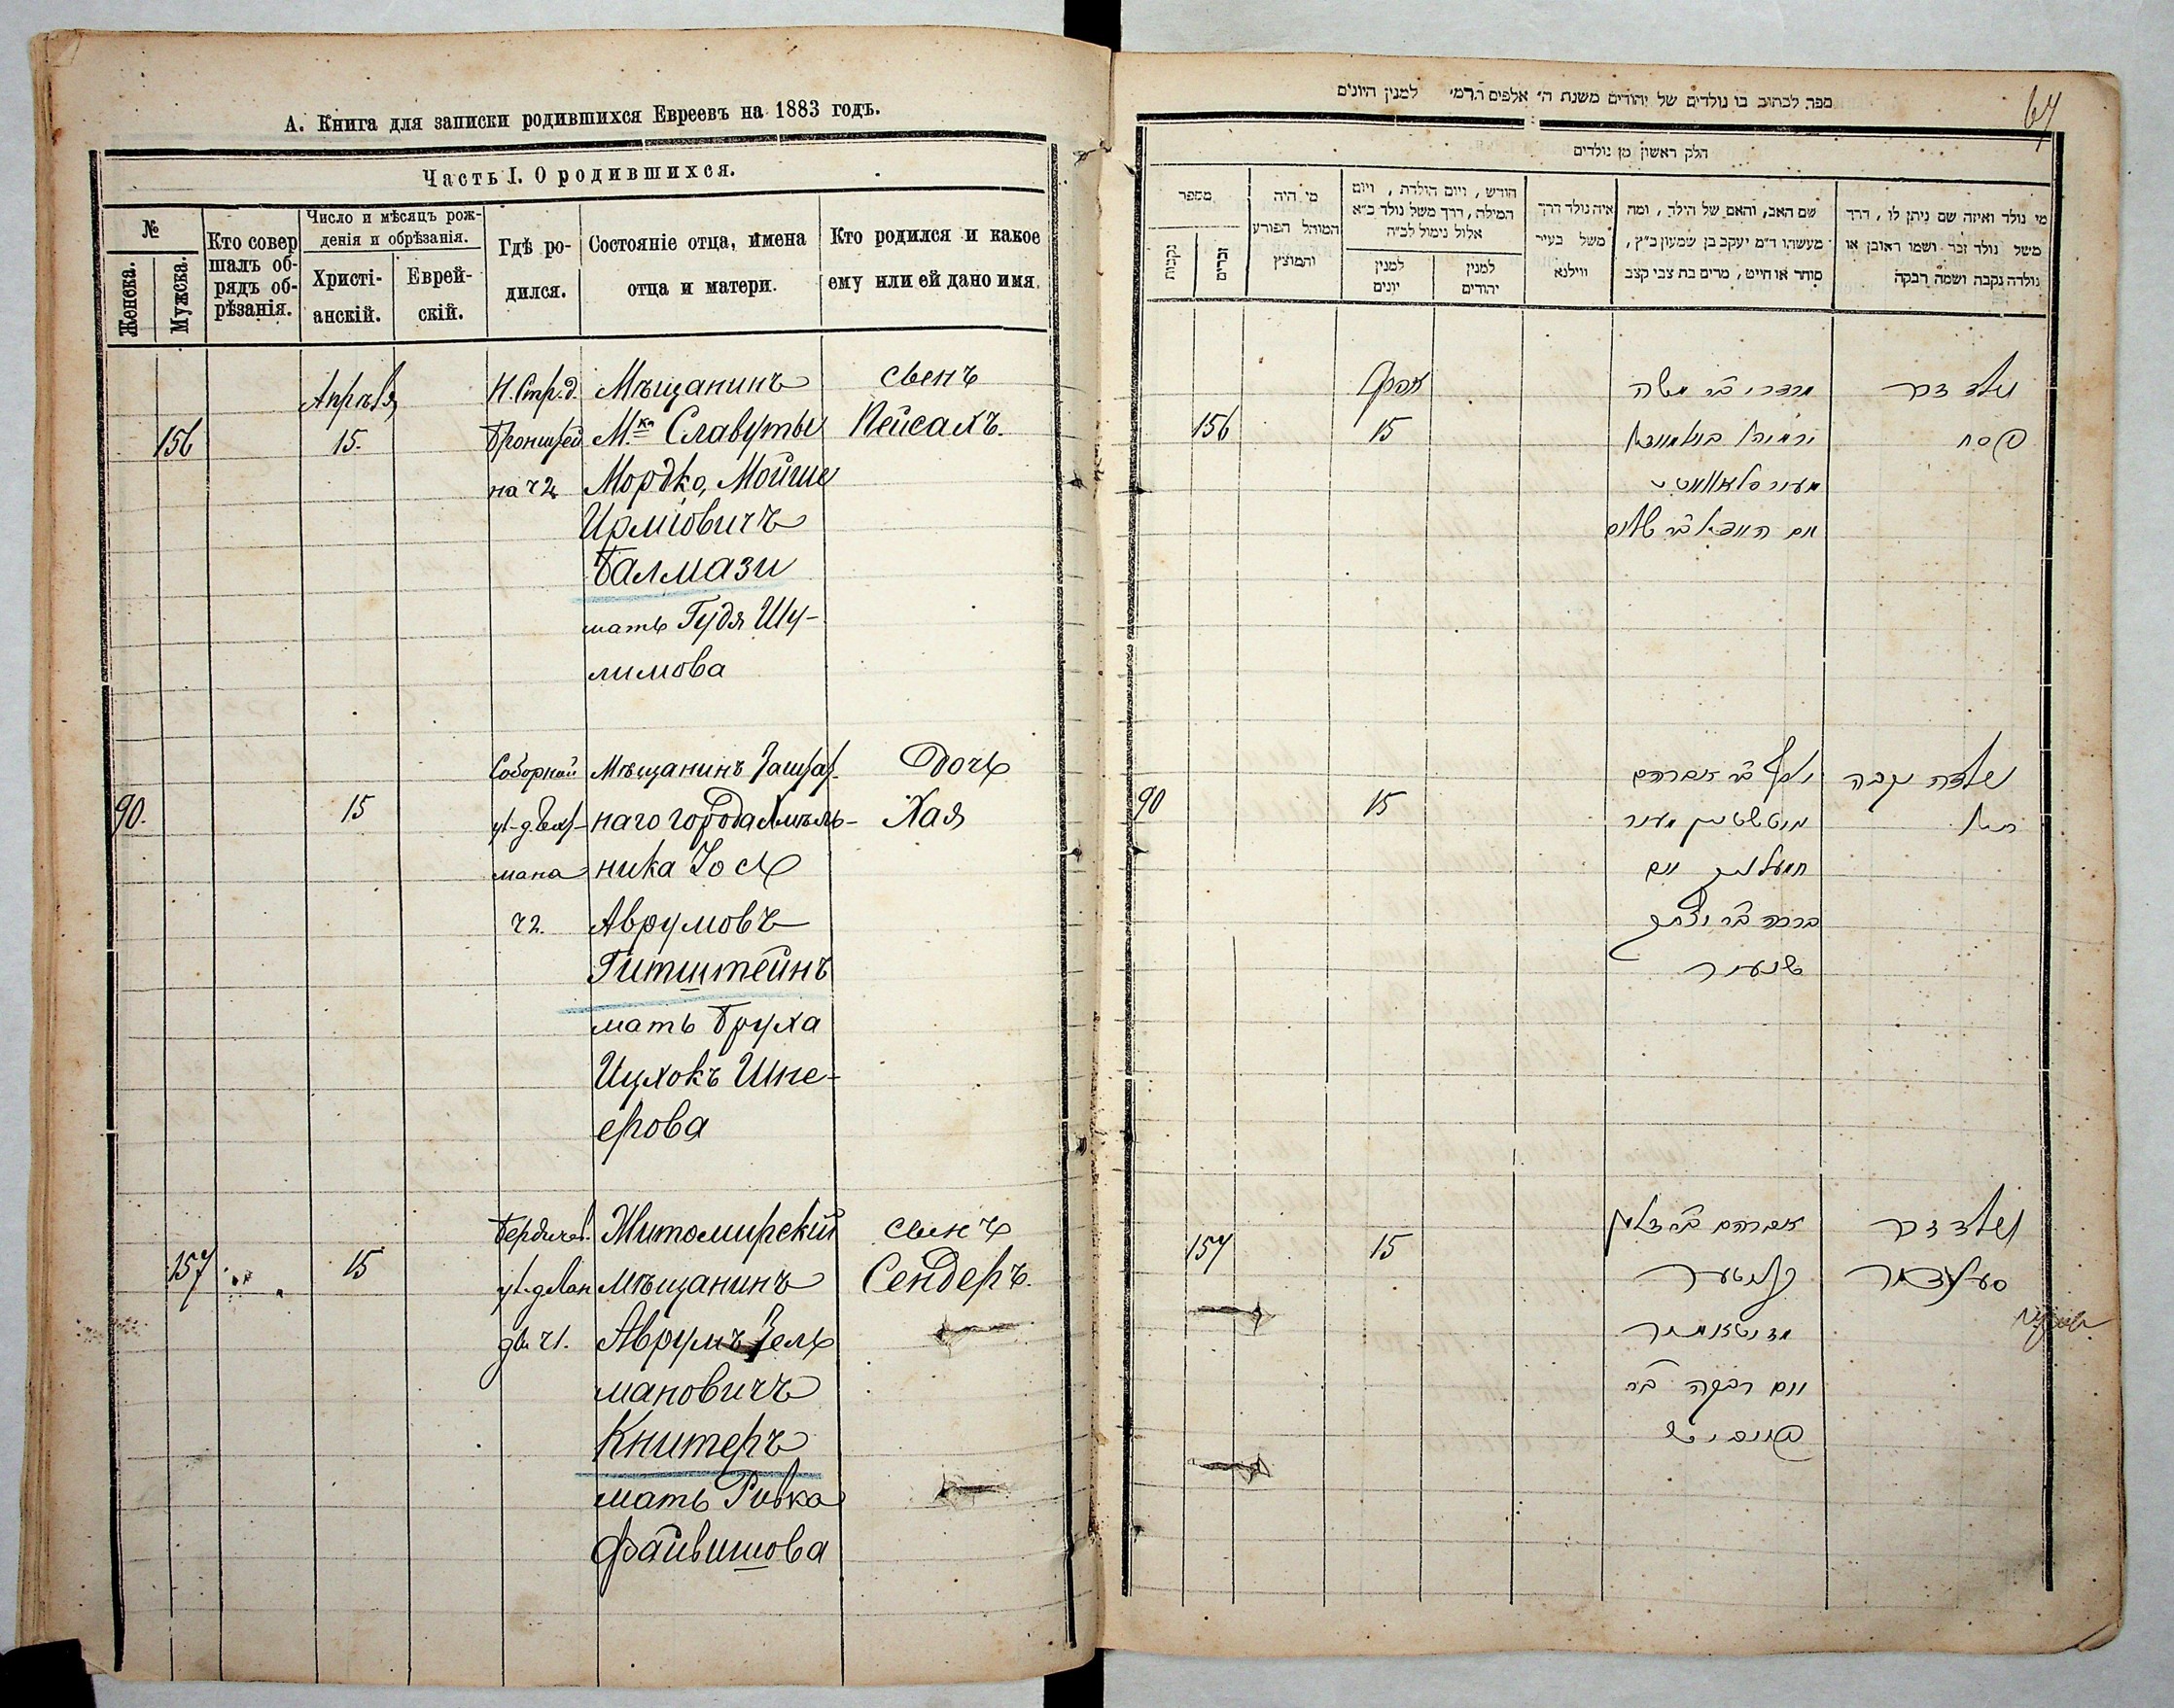 А. Книга для записки родившихся Евреевъ на 1883 годъ.
Часть I. О родившихся.
№
Женска.
Мужска.
Кто совер
шалъ об-
рядъ об-
рѣзанія.
Число и мѣсяцъ рож-
денія и обрѣзанія.
Христі-
анскій.
Еврей-
скій.
Гдѣ ро-
дился.
Состояніе отца, имена
отца и матери.
Кто родился и какое
ему или ей дано имя.
156
Апрѣля
15.
Н. Стр. д.
на ч 2
Мѣщанинъ
М.ка Славуты
Мордко, Мойше
Ирміовичъ
Балмази
мать Гудя Шу-
лимова
Сынъ
Пейсахъ.
90.
15
Соборной
ул. д. Гех-
мана
ч 2.
Мѣщанинъ Заштат-
наго города Хмѣль-
ника Іось
Аврумовъ
Гитштейнъ
мать Бруха
Ицхокъ Шне-
ерова
Дочь
Хая
157
15
Бердичев.
ул. д. Лан
ч 1.
Житомирскій
мѣщанинъ
Аврумъ Зель
мановичъ
Книтеръ
мать Ривка
Файвишова
Сынъ
Сендеръ.
67
ספר לכתוב בו נולדים של יהודים משנת ה' אלפים תרמ"ג למנין היונים
חלק ראשון מן נולדים
מספר
נקבות
זכרים
מי היה
המוהל הפורע
והמוצץ
חודש, ויום הולדת, ויום
המילה, דרך משל נולד כ"א
אלול נימול לכ"ה
למנין
יונים
למנין
יהודים
איה נולד דרך
משל בעיר
ווילנא
שם האב, והאם של הילד, ומה
מעשהו ד"מ יעקב בן שמעון כ"ץ,
סוחר או חייט, מרים בת צבי קצב
מי נולד ואיזה שם ניתן לו, דרך
משל נולד זכר ושמו ראובן או
נולדה נקבה ושמה רבקה
156
אפריל
15
מרדכי בר משה
ירמיהו באלמאזי
מעיר סלאוויטי
נולד זכר
פסח
90
15
יוסף בר אברהם
גיטשטיין מעיר
חמעלניק ואם
ברכה בר יצחק
שניעור
נולדה נקבה
חיה
157
15
אברהם בר זלמן
קניטער
זיטאמיר
ואם רבקה בר
פייוויש
נולד זכר
סענדער